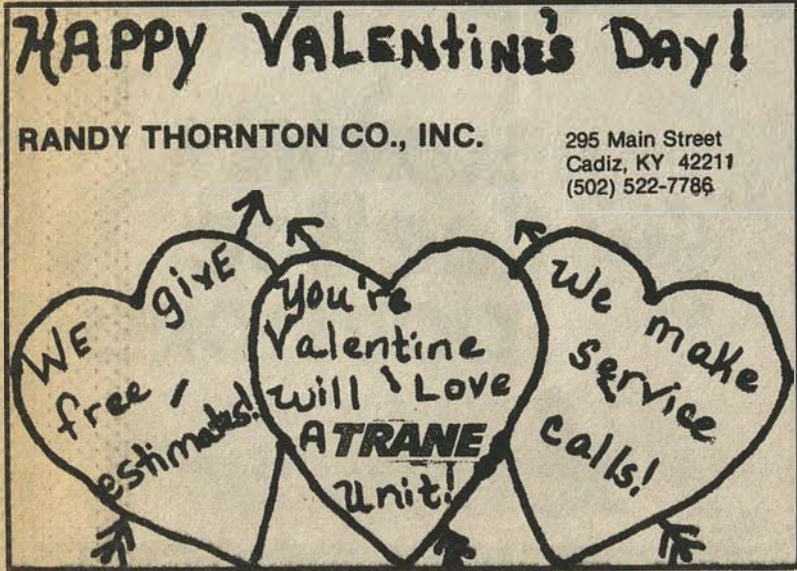 HAPPY VALENTINE'S DAY!
RANDY THORNTON CO., INC.
295 Main Street
Cadiz, KY 42211
(502) 522-7786
WE givE
free
estimates!
You're
Valentine
will Love
A TRANE
Unit!
We make
service
calls!